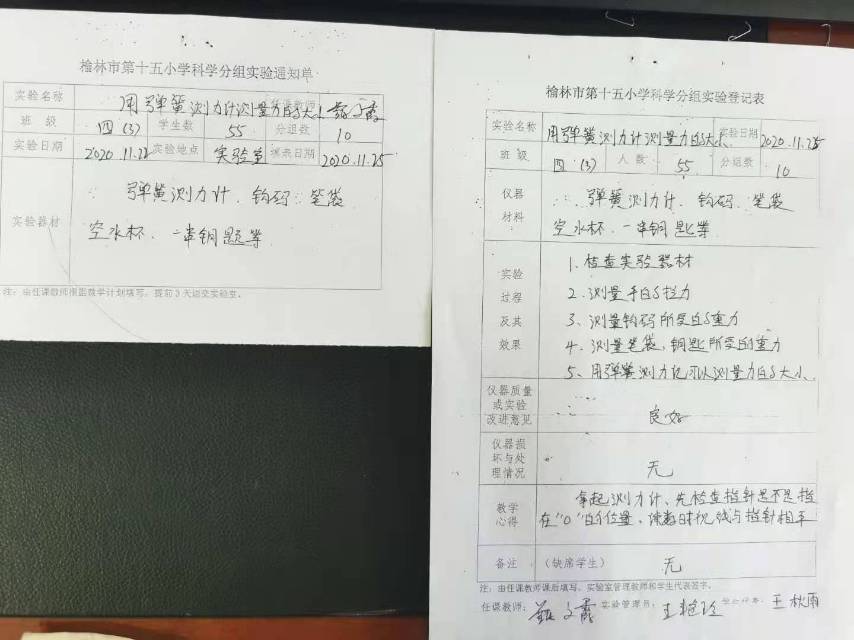 榆林市第十五小学科学分组实验通知单
实验名称 用弹簧测力计测量力的大小 任课教师
班 级 四(3) 学生数 55 分组数 10
实验日期 2020.11.22 实验地点 实验室 课表日期 2020.11.25
实验器材 弹簧测力计、钩码、笔袋
空水杯、一串钥匙等
注：由任课教师根据教学计划填写，提前3天送交实验室。
榆林市第十五小学科学分组实验登记表
实验名称 用弹簧测力计测量力的大小 实验日期 2020.11.25
班 级 四(3) 人 数 55 分组数 10
仪器 弹簧测力计、钩码、笔袋
材料 空水杯、一串钥匙等
实验 1、检查实验器材
过程 2、测量手的拉力
及其 3、测量钩码所受的重力
效果 4、测量笔袋、钥匙所受的重力
5、用弹簧测力计可以测量力的大小、
仪器质量
或实验
改进意见 良好
仪器损
坏与处
理情况 无
教学 拿起测力计、先检查指针是不是指
心得 在"0"的位置、读数时视线与指针相平
备注 （缺席学生） 无
注：由任课教师课后填写，实验室管理教师和学生代表签字。
任课教师： 实验管理员： 学生代表：王秋雨